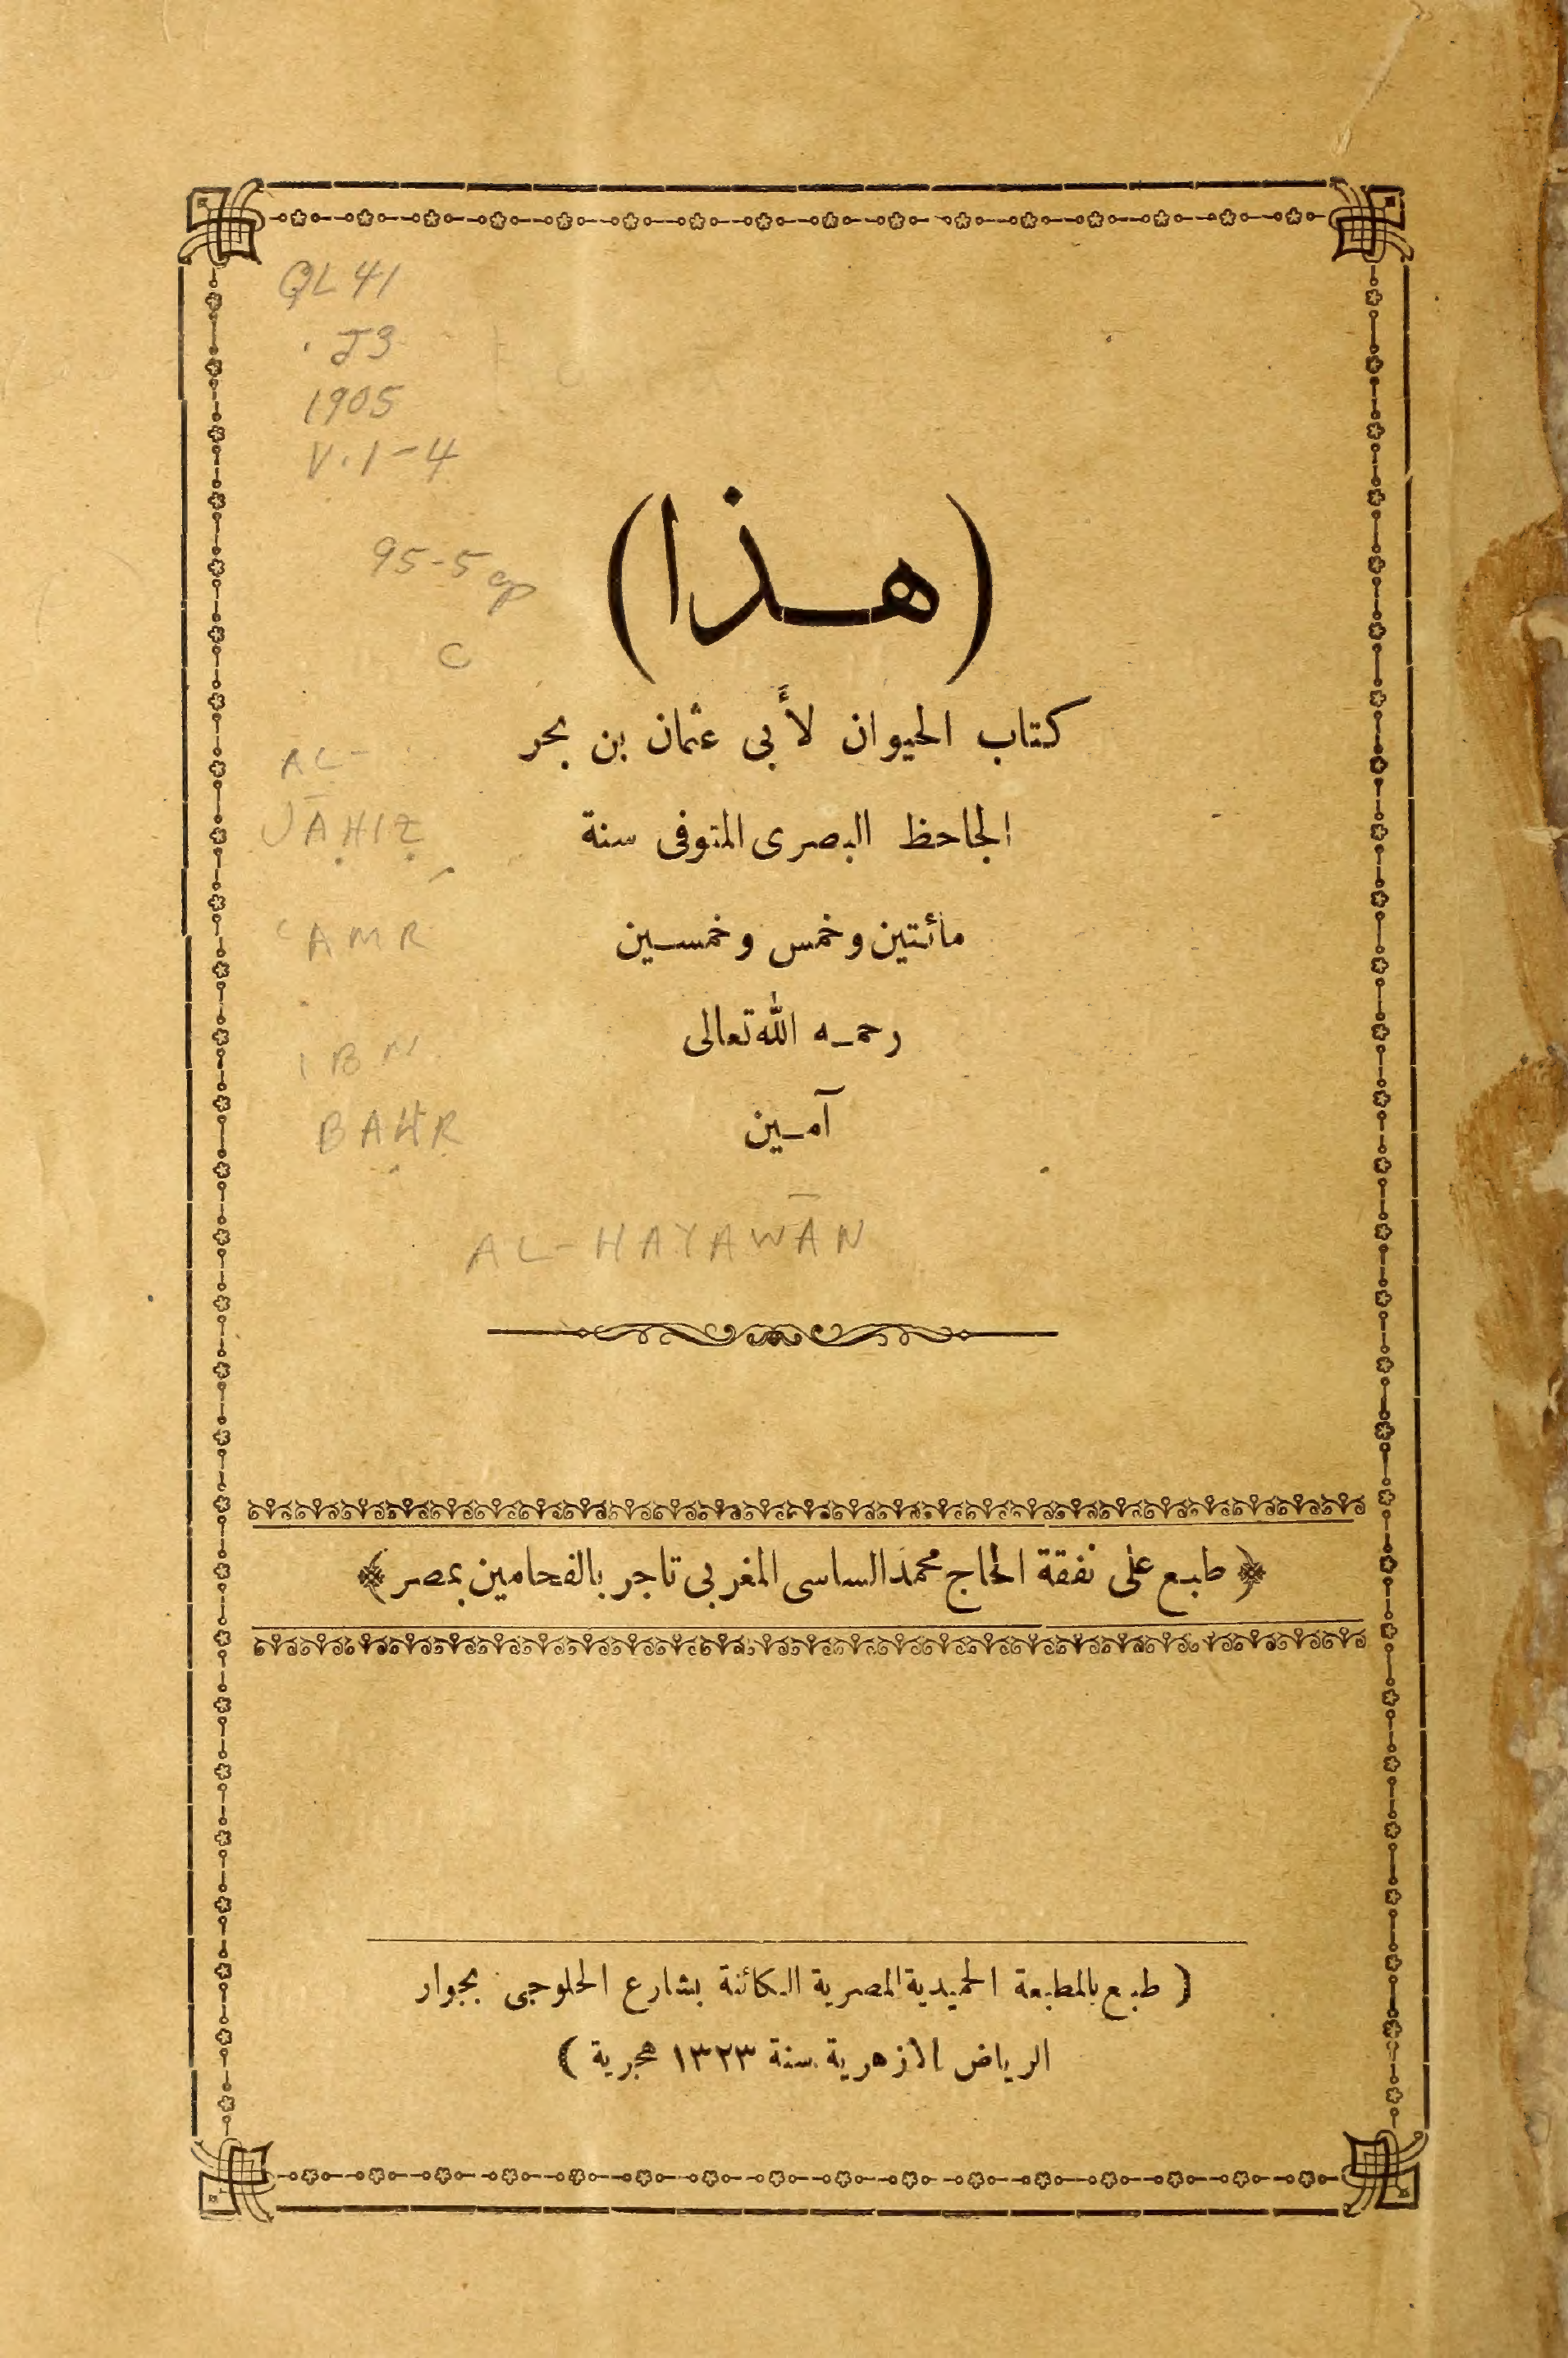 QL 41
.J3
1905
V.1-4
95-5
C
(هــذا)
كتاب الحيوان لأبى عثمان بن بحر
الجاحظ البصرى المتوفى سنة
مائتين وخمس وخمســين
رحمـه الله تعالى
آمـين
AL-
JĀḤIẒ,
ʿAMR
IBN
BAḤR
AL-HAYAWĀN
﴿ طبع على نفقة الحاج محمد الساسى المغربى تاجر بالفحامين بمصر ﴾
( طبع بالمطبعة الحميدية المصرية الكائنة بشارع الحلوجى بجوار
الرياض الازهرية سنة ١٣٢٣ هجرية )